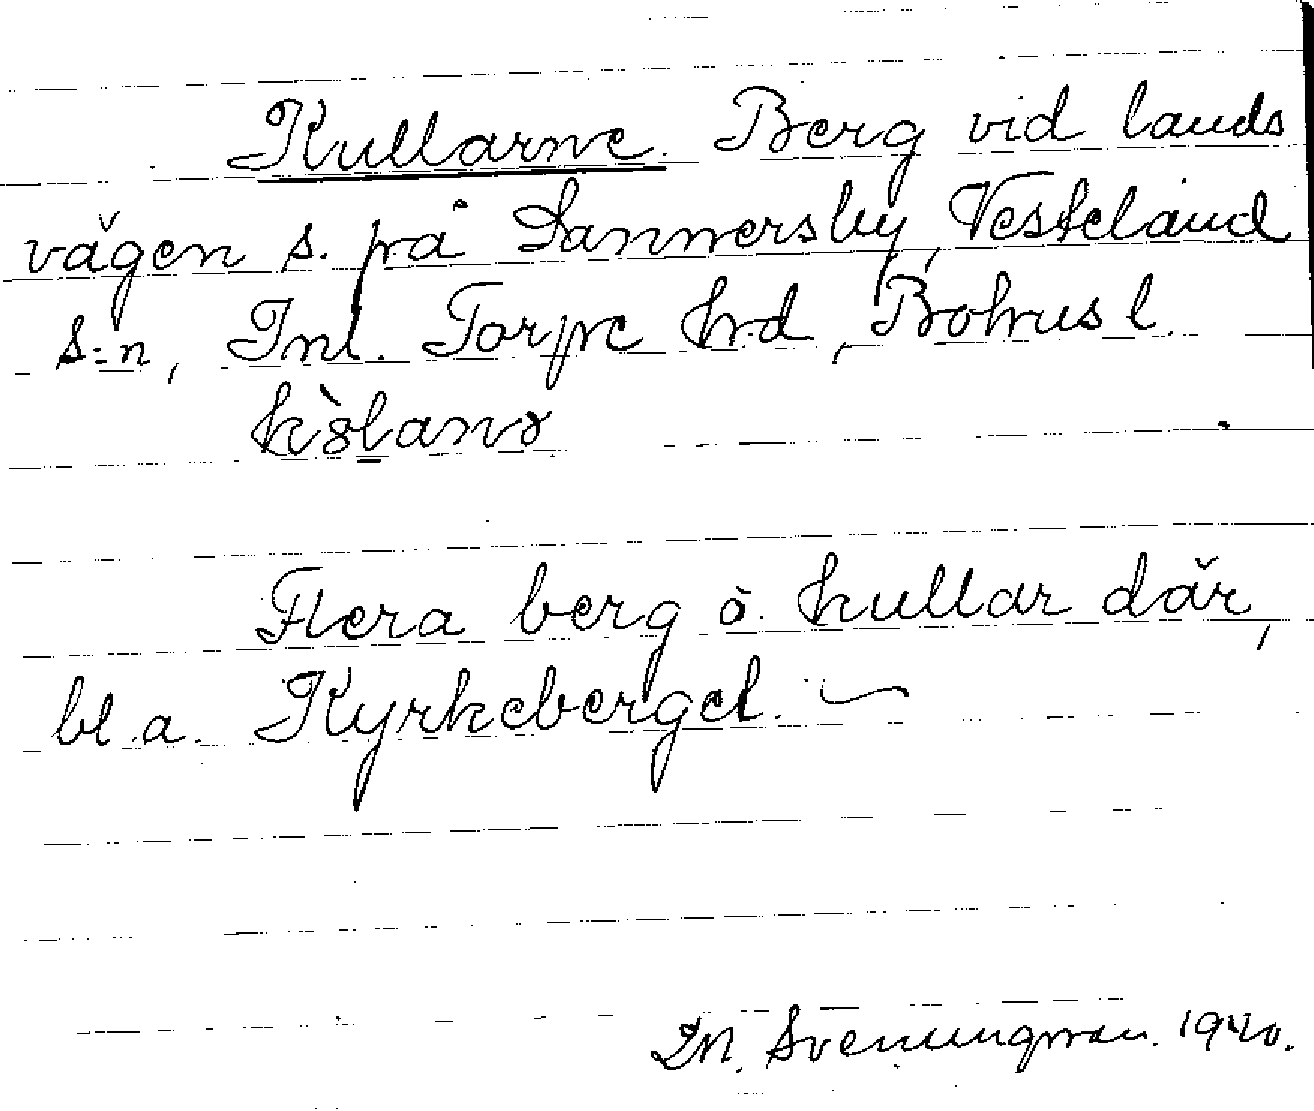 Kullarne. Berg vid lands
vägen s. på Sannersby, Vesteland
s:n, Inl. Torpe hd, Bohusl.
Flera berg o. kullar där,
bl.a. Kyrkeberget.
M. Svenungsson. 1940.